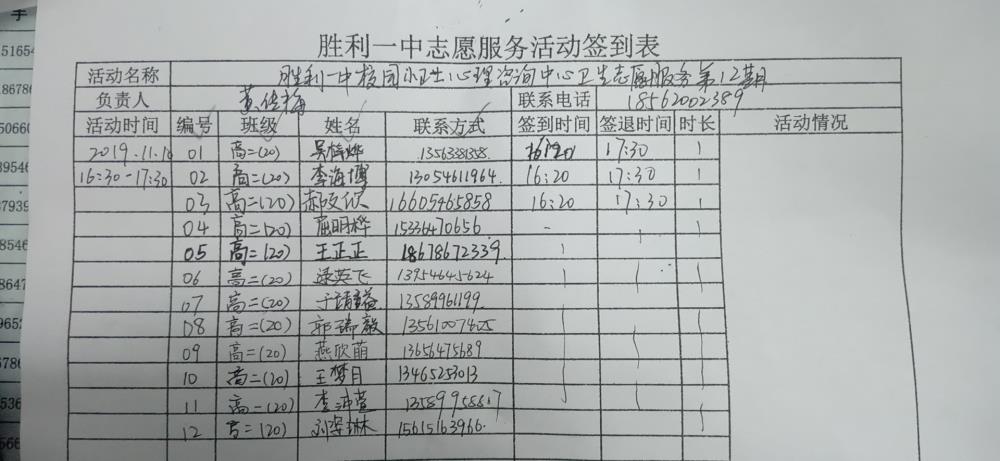 胜利一中志愿服务活动签到表
活动名称 胜利一中校园卫士心理咨询中心卫生志愿服务第12期
负责人 黄佳梅 联系电话 18562002389
活动时间 编号 班级 姓名 联系方式 签到时间 签退时间 时长 活动情况
2019.11.10 01 高二(20) 13563881358 16:20 17:30 1
16:30-17:30 02 高二(20) 李海博 13054611964 16:20 17:30 1
03 高二(20) 郝文欣 16605465858 16:20 17:30 1
04 高二(20) 屈明桦 15336470656
05 高二(20) 王正正 18678672339
06 高二(20) 逯英飞 13954645624
07 高二(20) 于靖益 13589961199
08 高二(20) 郭瑞毅 13561007405
09 高二(20) 燕欣萌 13656475689
10 高二(20) 王梦月 13465253013
11 高二(20) 13589958817
12 高二(20) 刘姿琳 15615163966